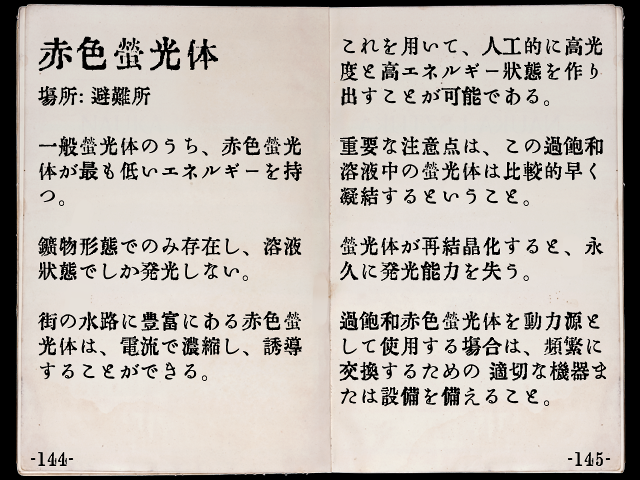 赤色螢光体
場所: 避難所
一般螢光体のうち、赤色螢光
体が最も低いエネルギーを持
つ。
鑛物形態でのみ存在し、溶液
狀態でしか発光しない。
街の水路に豊富にある赤色螢
光体は、電流で濃縮し、誘導
することができる。
-144-
これを用いて、人工的に高光
度と高エネルギー狀態を作り
出すことが可能である。
重要な注意点は、この過飽和
溶液中の螢光体は比較的早く
凝結するということ。
螢光体が再結晶化すると、永
久に発光能力を失う。
過飽和赤色螢光体を動力源と
して使用する場合は、頻繁に
交換するための 適切な機器ま
たは設備を備えること。
-145-